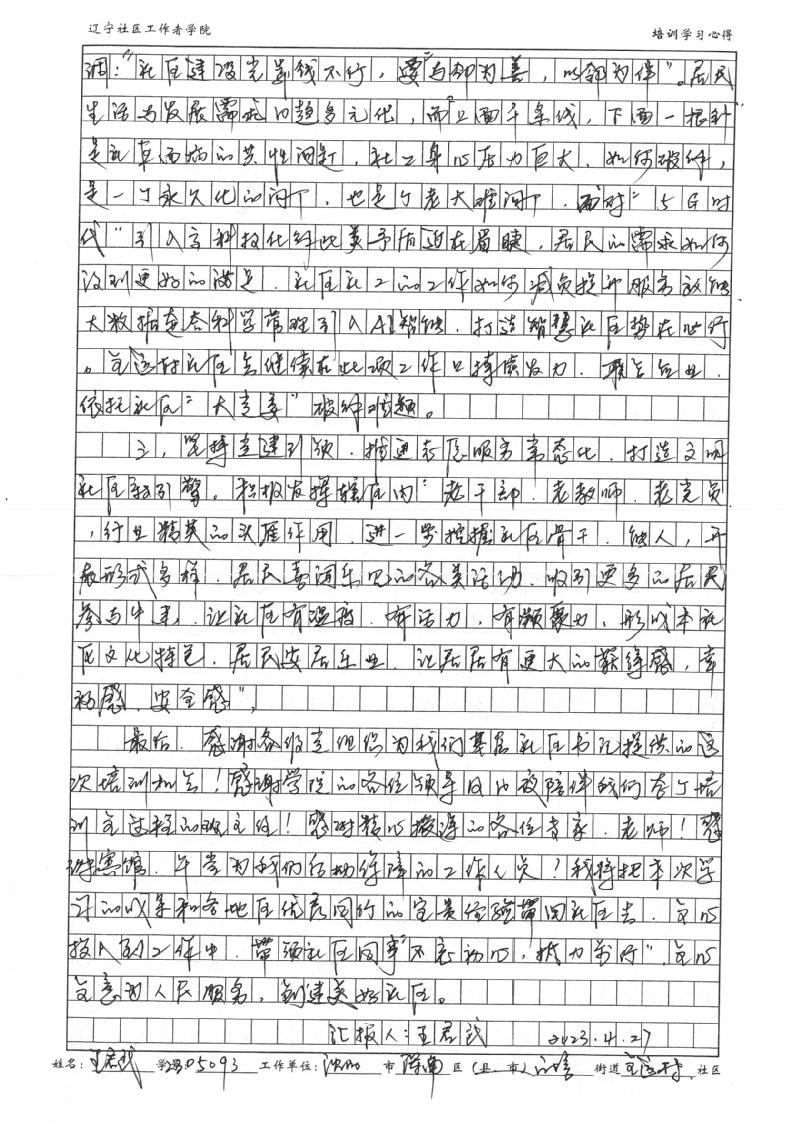 辽宁社区工作者学院 培训学习心得
调：“社区建设光单线不行，要‘与邻为善，以邻为伴’”。居民
生活与发展需求日趋多元化，而且上面千条线，下面一根针
是社区通病的共性问题，社工身心压力巨大，如何破解，
是一个永久化的问题，也是个老大难问题，面对“5G时
代”引入高科技化解此类矛盾迫在眉睫，居民的需求如何
得到更好的满足，社区社工的工作如何减负提升服务效能
大数据是否科学管理引入AI智能，打造智慧社区势在必行
。社区会继续在此项工作上持续发力，联合企业，
依托社区“大党委”破解难题。
三，坚持党建引领，推进志愿服务常态化，打造文明
社区新引擎。积极发挥辖区内“老干部、老教师、老党员
，行业精英的头雁作用，进一步挖掘社区骨干、能人，开
展形式多样，居民喜闻乐见的各类活动，吸引更多的居民
参与进来，让社区有温度，有活力，有凝聚力，形成本社
区文化特色，居民安居乐业，让居民有更大的获得感，幸
福感，安全感”，
最后，感谢各级党组织为我们基层社区书记提供的这
次培训机会！感谢学院的各位领导日日夜陪伴我们整个培
训全过程的班主任！感谢精心授课的各位专家、老师！感
谢宾馆、食堂为我们后勤保障的工作人员！我将把本次学
习的成果和各地区优秀同行的宝贵经验带回社区去，全心
投入到工作中，带领社区同事“不忘初心，接力前行”，全心
全意为人民服务，创建美好社区。
汇报人：王君 2023.4.27
姓名： 学号：05093 工作单位：沈阳 市 浑南 区（县、市） 街道 社区